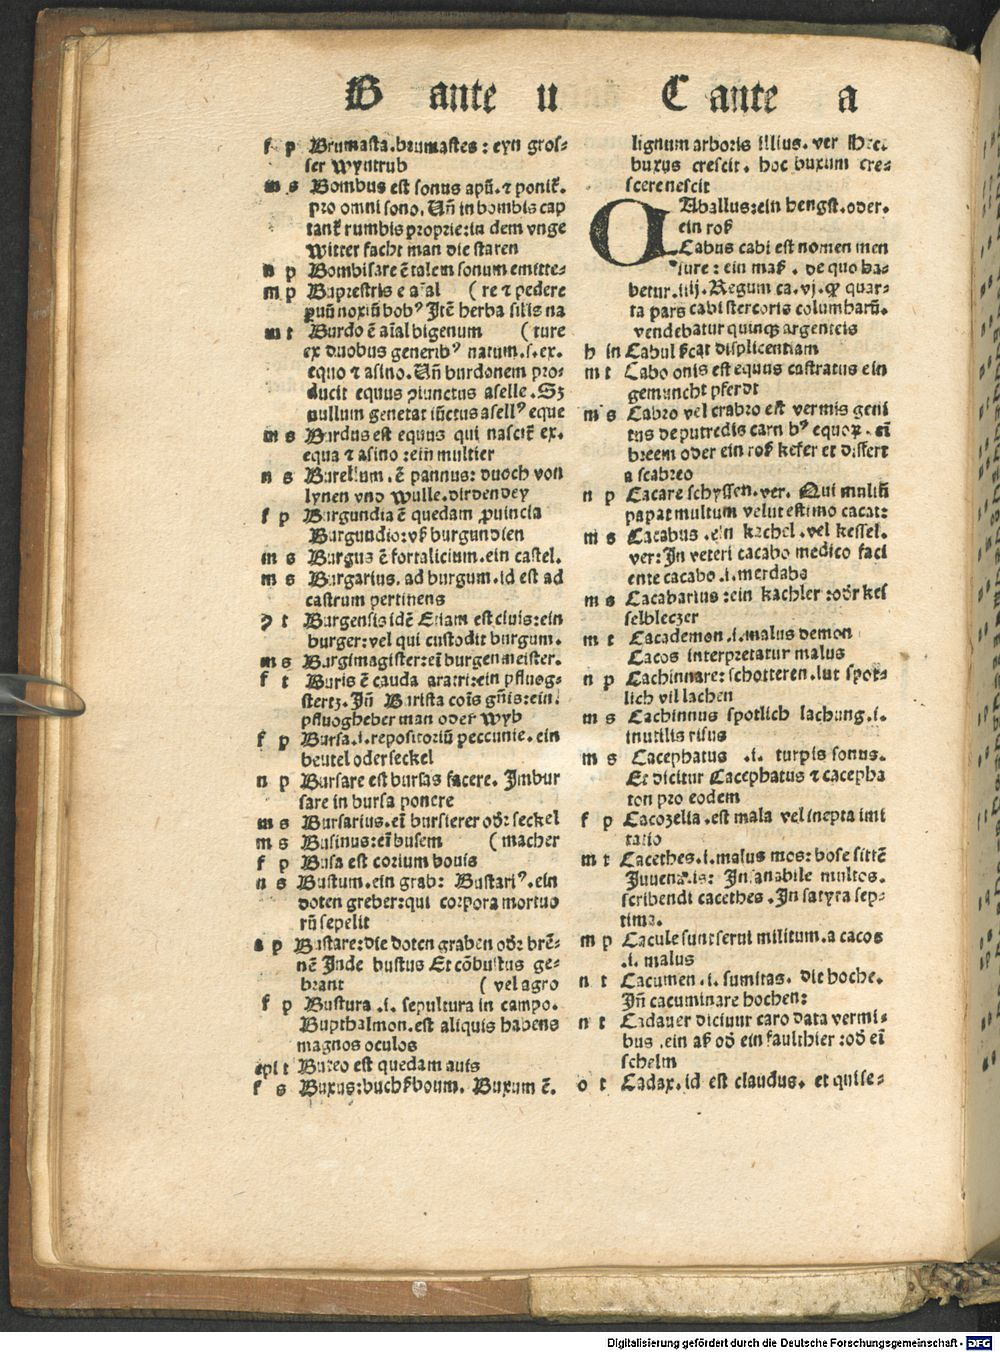 B ante u
f p Brumasta.brumastes: eyn gros-
ser wyntrub
m s Bombus est sonus apū. ⁊ ponit᷑.
pro omni sono. Uñ in bombis cap
tant᷑ rumbis proprie:in dem vnge
witter facht man die staren
n p Bombisare ē talem sonum emitte-
m p Buprestris e aīal ( re ⁊ pedere
noxiū bobꝰ Itē herba silis na
m t Burdo ē aīal bigenum ( ture
ex duobus generibꝰ natum.s.ex.
equo ⁊ asino. Uñ burdonem pro-
ducit equus ꝯiunctus aselle. Sꝫ
nullum generat iūctus asellꝰ eque
m s Burdus est equus qui nascit᷑ ex.
equa ⁊ asino:ein multier
n s Burellum. ē pannus: duoch von
lynen vnd wulle.dirdendey
f p Burgundia ē quedam ꝓuincia
Burgundio:vß burgundien
m s Burgus ē fortalicium.ein castel.
m s Burgarius. ad burgum.id est ad
castrum pertinens
ꝯ t Burgensis idē Etiam est ciuis:ein
burger:vel qui custodit burgum.
m s Burgimagister:eī burgenmeister.
f t Buris ē cauda aratri:ein pfluog-
stertz. Iñ Burista cois gñis:ein.
pfluogheber man oder wyb
f p Bursa.i.repositoriū peccunie.ein
beutel oder seckel
n p Bursare est bursas facere. Imbur
sare in bursa ponere
m s Bursarius.eī bursierer od᷑: seckel
m s Businus:eī busem ( macher
f p Busa est corium bouis
n s Bustum.ein grab: Bustariꝰ.ein
doten greber:qui corpora mortuo
rū sepelit
a p Bustare:die doten graben od᷑: brē-
nē Inde bustus Et cōbustus ge-
brant ( vel agro
f p Bustura .i. sepultura in campo.
Bupthalmon.est aliquis habens
magnos oculos
epi t Buteo est quedam auis
f s Buxus:buchßboum. Buxum ē.
C ante a
lignum arboris illius. ver Hec.
buxus crescit. hoc buxum cre-
scere nescit
CAballus:ein hengst.oder.
ein roß
Cabus cabi est nomen men
sure: ein maß. de quo ha-
betur.iiij. Regum ca.vj. ꝙ quar-
ta pars cabi stercoris columbarū.
vendebatur quinqꝫ argenteis
h in Cabul s̄cat displicentiam
m t Cabo onis est equus castratus ein
gemuncht pferdt
m s Cabro vel crabro est vermis geni
tus de putredis carnibꝰ equoꝝ. eī
breem oder ein roß kefer et differt
a scabreo
n p Cacare schyssen.ver. Qui multū
papat multum velut estimo cacat:
m s Cacabus .ein kachel.vel kessel.
ver: In veteri cacabo medico faci
ente cacabo .i.merdabo
m s Cacabarius:ein kachler:od᷑r kes
selbleczer
m t Cacademon.i.malus demon
Cacos interpretatur malus
n p Cachinnare: schotteren.lut spot-
lich vil lachen
m s Cachinnus spotlich lachung.i.
inutilis risus
m s Cacephatus .i. turpis sonus.
Et dicitur Cacephatus ⁊ cacepha
ton pro eodem
f p Cacozelia.est mala vel inepta imi
tatio
m t Cacethes.i.malus mos: bose sittē
Juuena.is: Insanabile multos.
scribendi cacethes.In satyra sep-
tima.
m p Cacule sunt serui militum.a cacos
.i. malus
n t Cacumen.i.sumitas. die hoche.
Iñ cacuminare hochen:
n t Cadauer dicitur caro data vermi-
bus .ein aß od᷑ ein faulthier:od᷑ eī
schelm
o t Cadax.id est claudus. et quise-
Digitalisierung gefördert durch die Deutsche Forschungsgemeinschaft - DFG